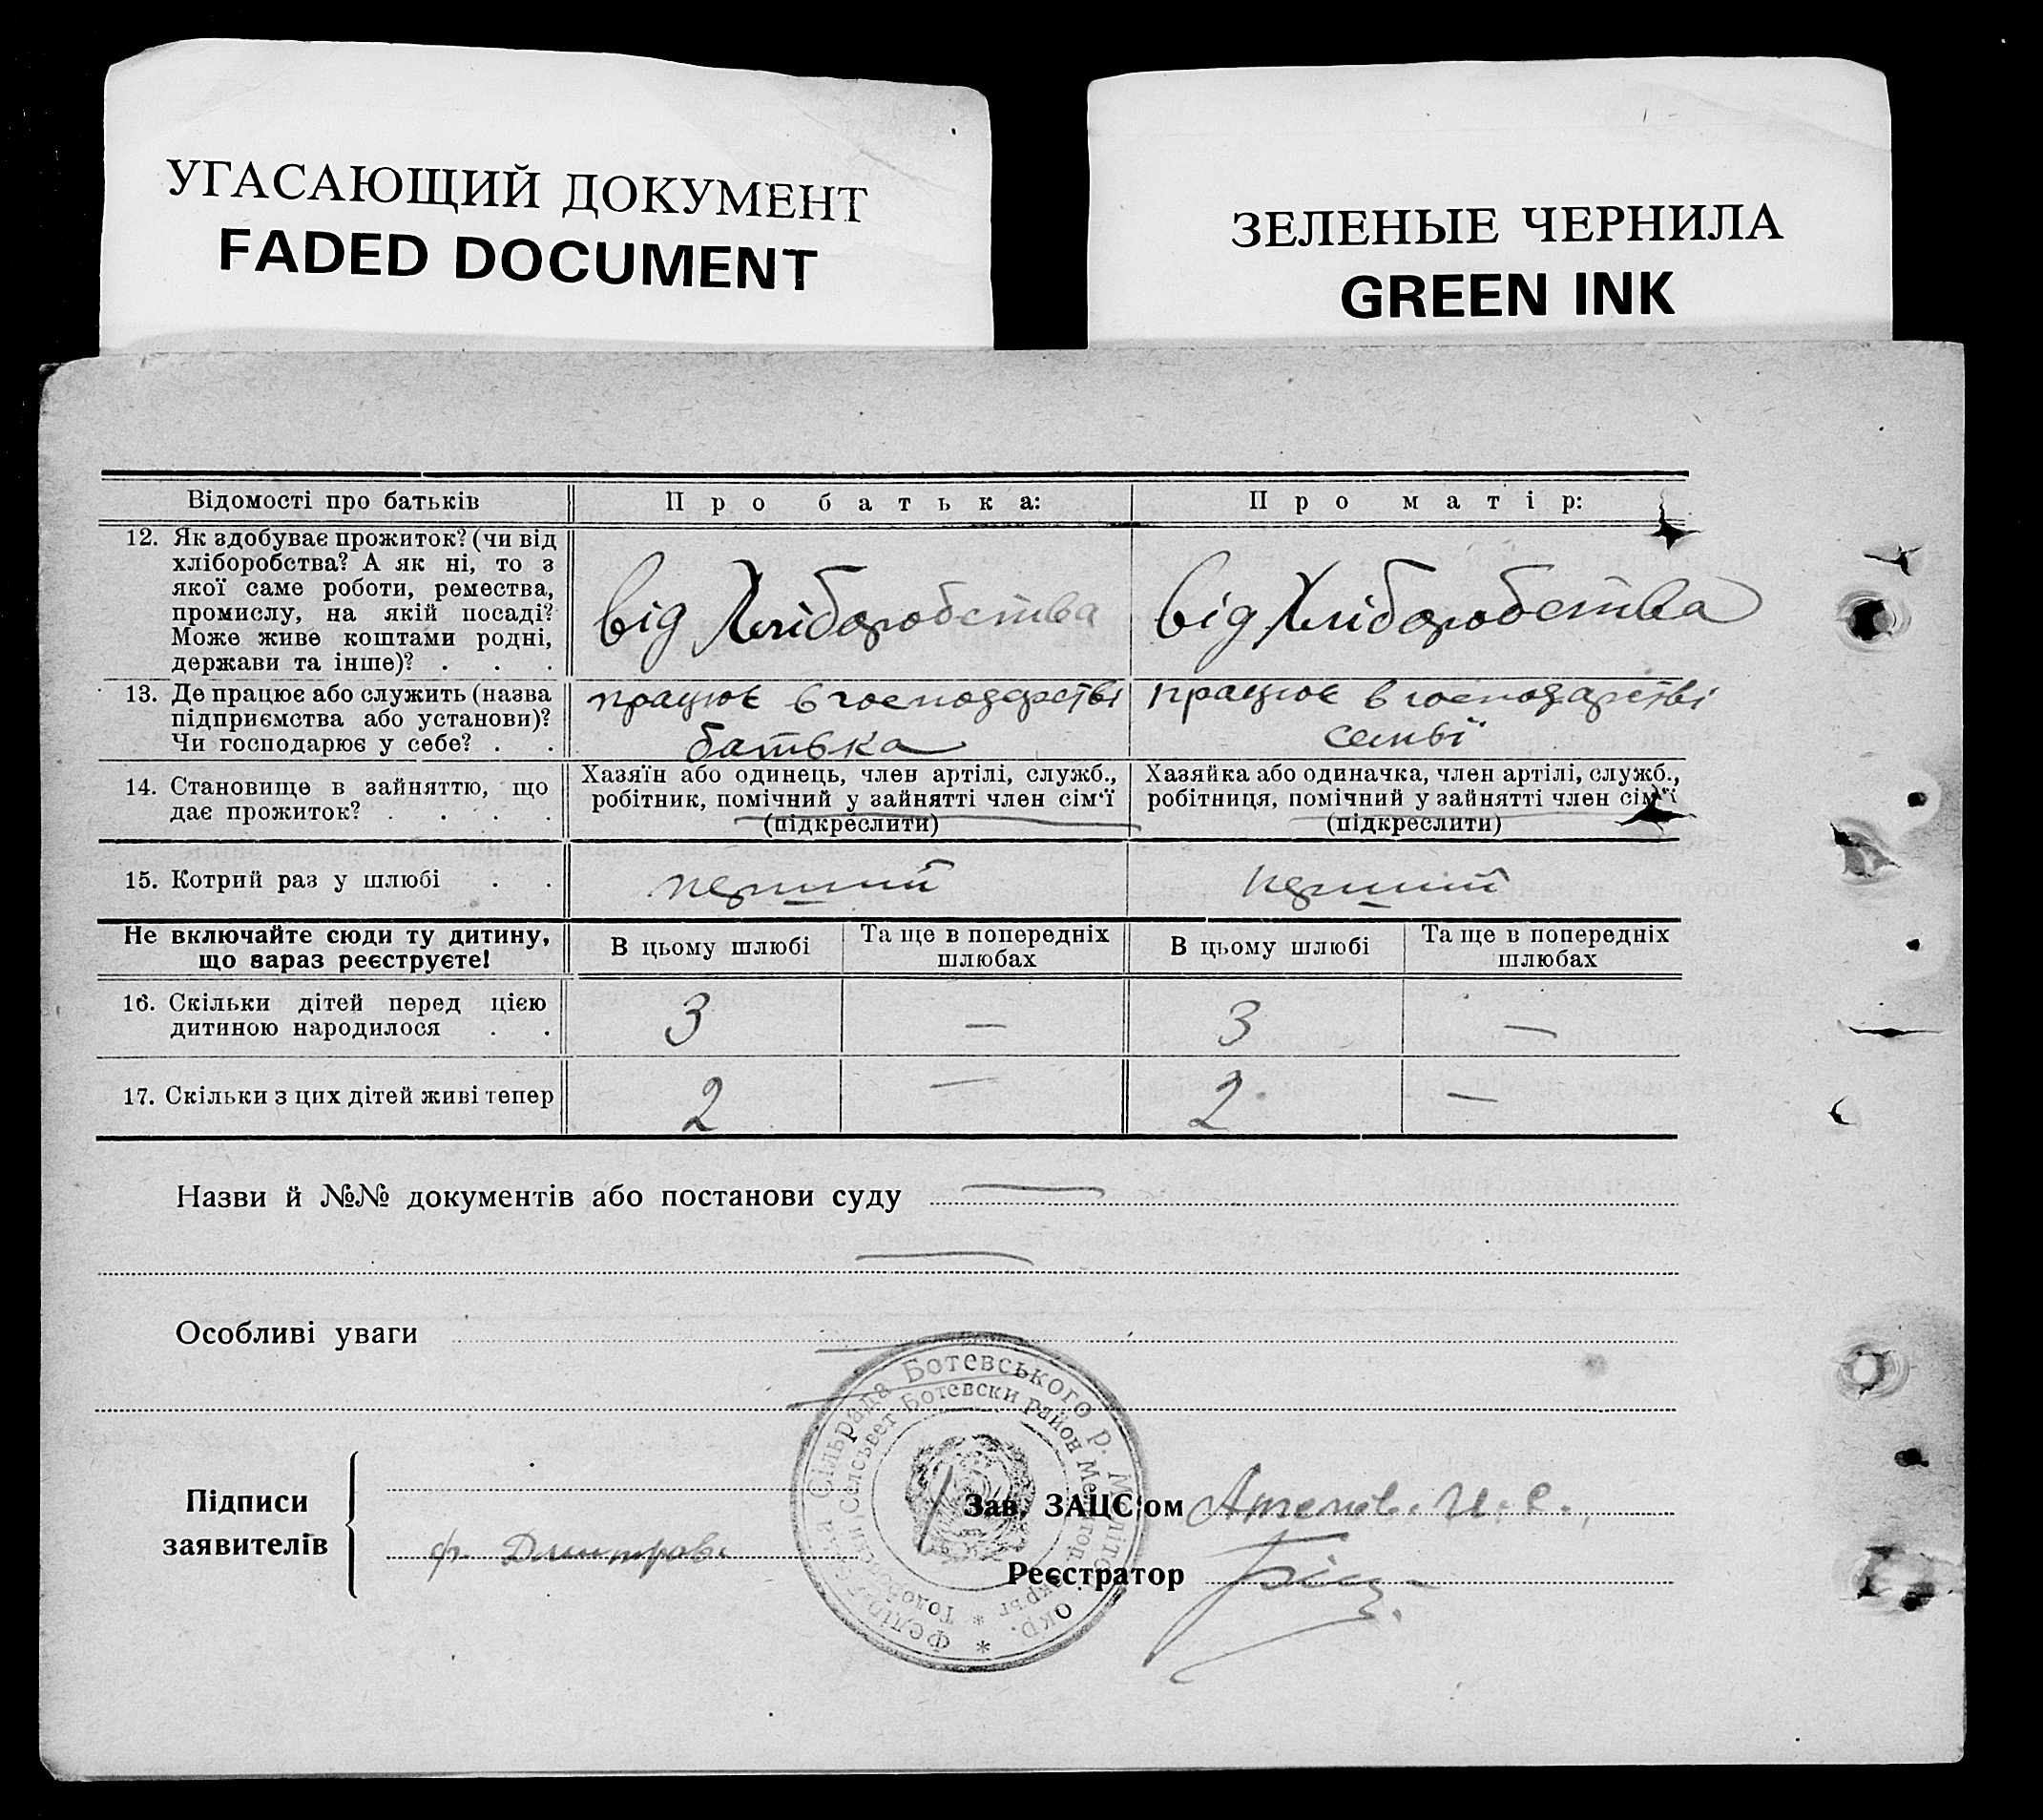 УГАСАЮЩИЙ ДОКУМЕНТ
FADED DOCUMENT
ЗЕЛЕНЫЕ ЧЕРНИЛА
GREEN INK
Відомості про батьків
Про батька:
Про матір:
12. Як здобуває прожиток? (чи від
хліборобства? А як ні, то з
якої саме роботи, ремества,
промислу, на якій посаді?
Може живе коштами родні,
держави та інше)? . . .
від Хліборобства
від Хліборобства
13. Де працює або служить (назва
підприємства або установи)?
Чи господарює у себе? . .
працює в господарстві
батька
працює в господарстві
семьї
14. Становище в зайняттю, що
дає прожиток? . . . .
Хазяїн або одинець, член артілі, служб.,
робітник, помічний у зайнятті член сім'ї
(підкреслити)
Хазяйка або одиначка, член артілі, служб.,
робітниця, помічний у зайнятті член сім'ї
(підкреслити)
15. Котрий раз у шлюбі . .
перший
перший
Не включайте сюди ту дитину,
що зараз реєструєте!
В цьому шлюбі
Та ще в попередніх
шлюбах
В цьому шлюбі
Та ще в попередніх
шлюбах
16. Скільки дітей перед цією
дитиною народилося . .
3
—
3
—
17. Скільки з цих дітей живі тепер
2
—
2
—
Назви й №№ документів або постанови суду —
—
Особливі уваги
Сільрада Ботевського р. Меліто окр.
Селсьвет Ботевски район Мелитоп. окръг
Підписи
заявителів
ф. Дмитров
Зав. ЗАЦС'ом
Реєстратор